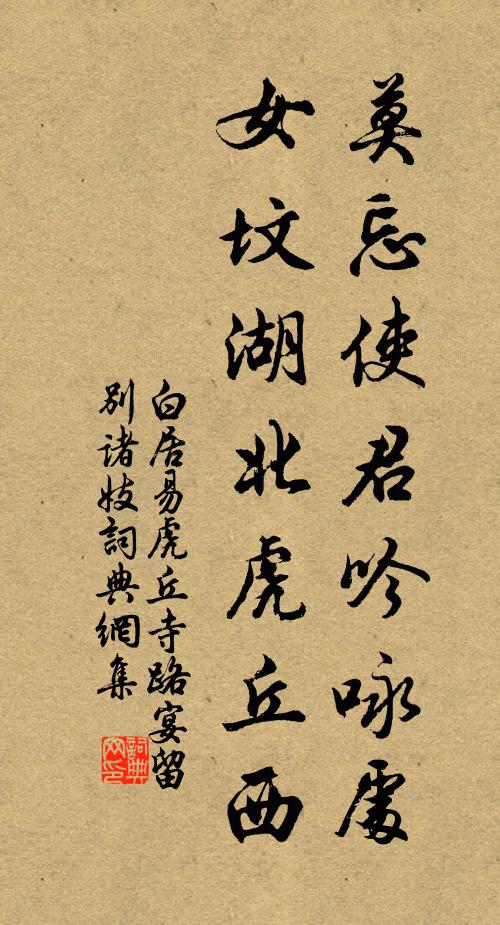 莫忘使君吟咏處
女坟湖北虎丘西
白居易虎丘寺路宴留
别诸妓詞典網集
詞典
网印